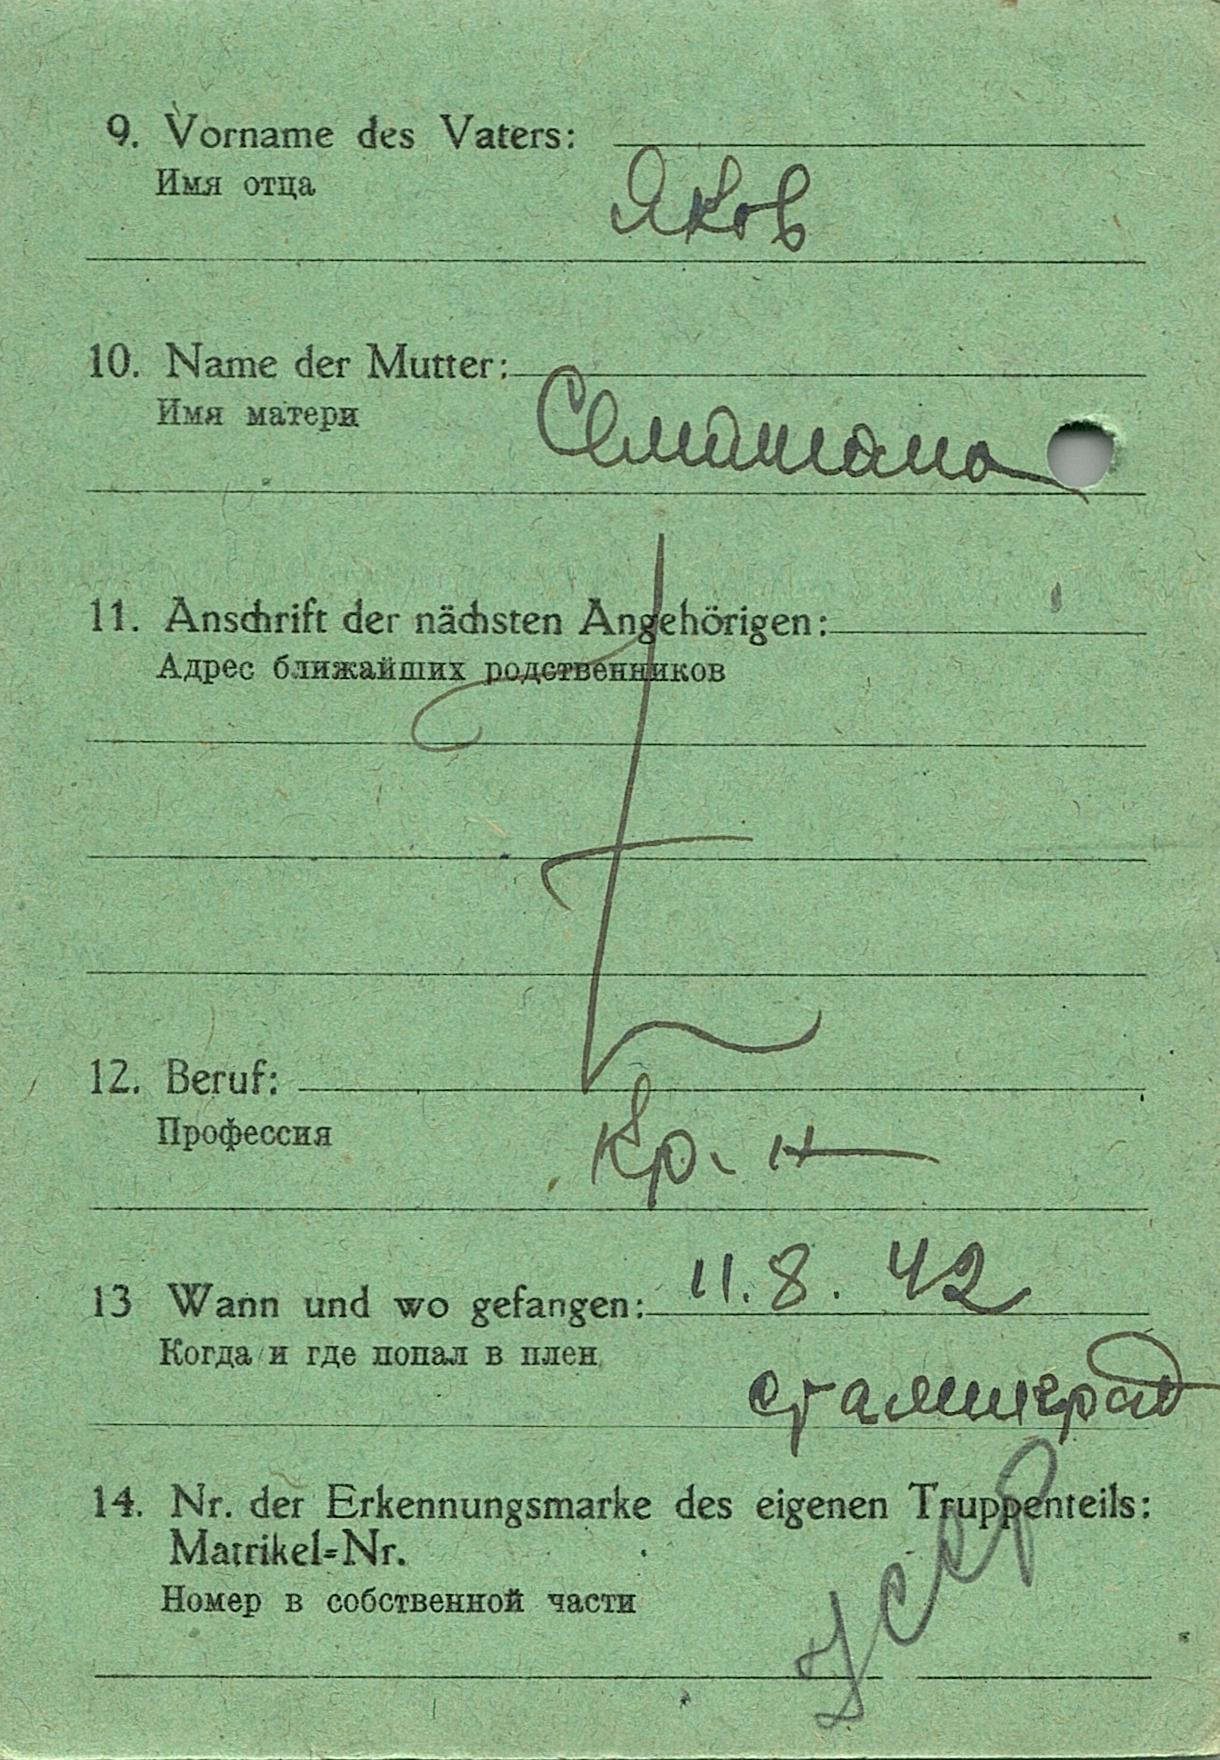 9. Vorname des Vaters:
Имя отца
Яков
10. Name der Mutter:
Имя матери
11. Anschrift der nächsten Angehörigen:
Адрес ближайших родственников
12. Beruf:
Профессия
Кр. н
13 Wann und wo gefangen: 11.8.42
Когда и где попал в плен
сталинград
14. Nr. der Erkennungsmarke des eigenen Truppenteils:
Matrikel=Nr.
Номер в собственной части